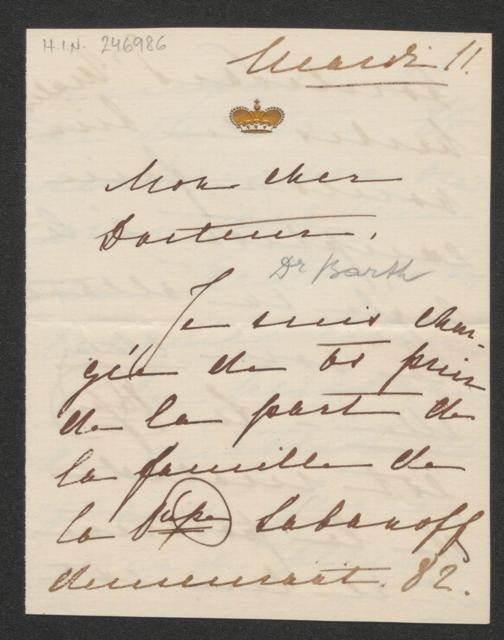 H.I.N. 246986
Mardi 11.
Mon cher
Docteur,
Dr Barth
Je suis char-
gée de vs prier
de la part de
la famille de
la Psse Labanoff
demeurant. 82.